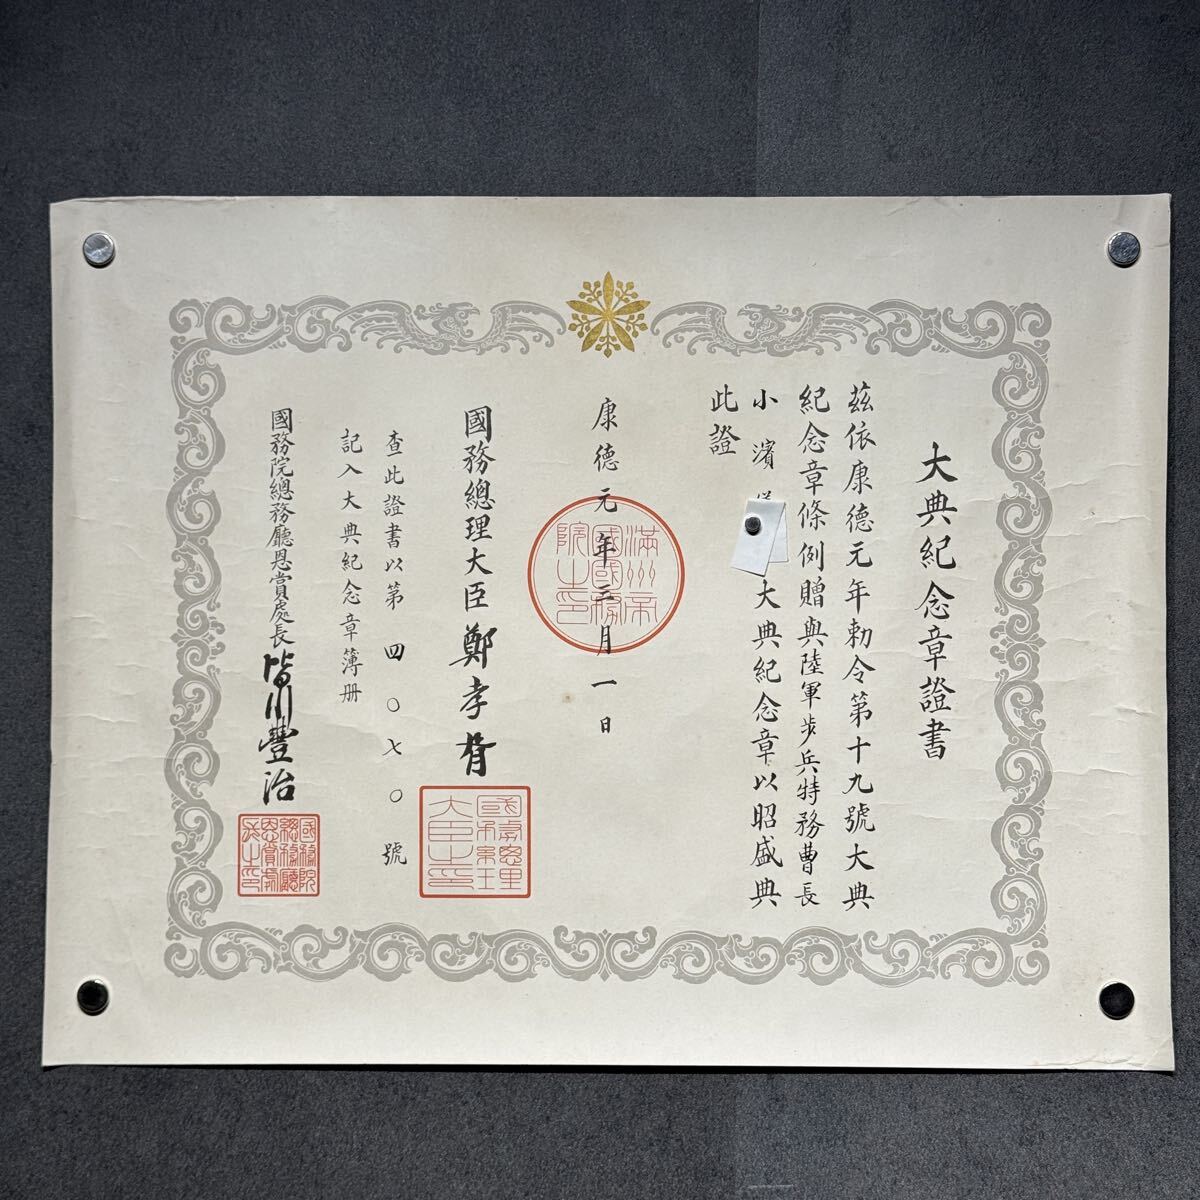 大典紀念章證書
茲依康德元年勅令第十九號大典
紀念章條例贈與陸軍步兵特務曹長
小濱 大典紀念章以昭盛典
此證
康德元年三月一日
滿洲帝國國務院之印
國務總理大臣鄭孝胥
國務總理大臣之印
查此證書以第四〇七〇號
記入大典紀念章簿册
國務院總務廳恩賞處長皆川豐治
國務院總務廳恩賞處長之印